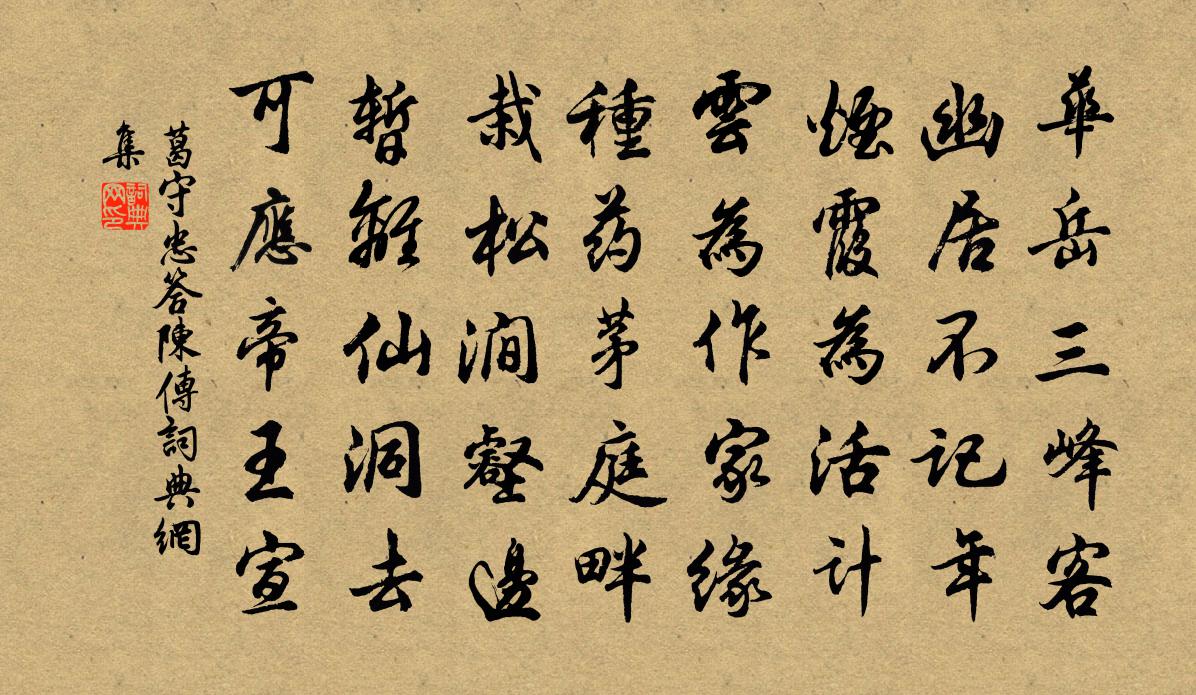 華岳三峰客
幽居不記年
煙霞為活計
雲為作家緣
種药茅庭畔
栽松澗壑邊
暫離仙洞去
可應帝王宣
葛守忠答陳傳詞典網
集
詞典
网印